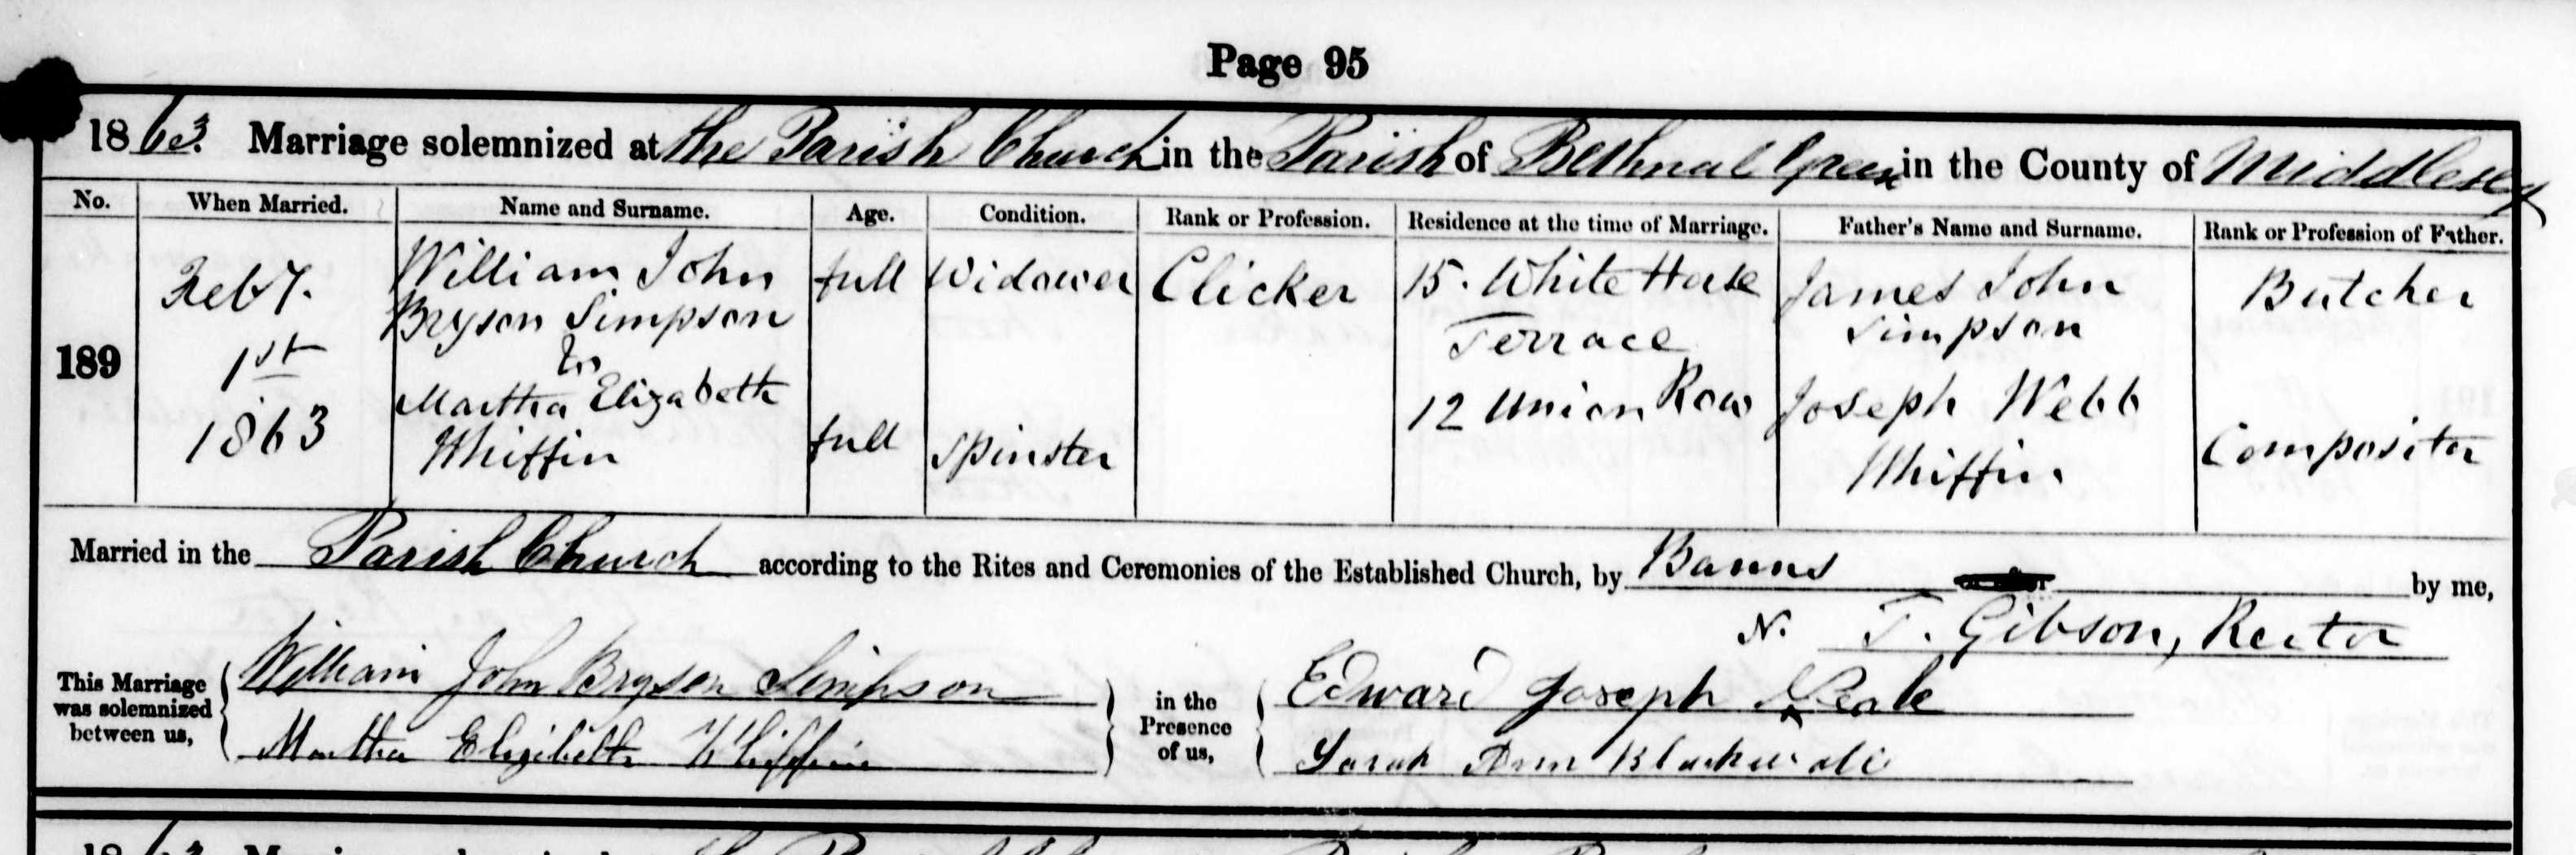 Page 95
1863. Marriage solemnized at the Parish Church in the Parish of Bethnal Green in the County of Middlesex
No. When Married. Name and Surname. Age. Condition. Rank or Profession. Residence at the time of Marriage. Father's Name and Surname. Rank or Profession of Father.
189
Feby.
1st
1863
William John
Bryson Simpson
full
Widower
Clicker
15. White Horse
Terrace
James John
Simpson
Butcher
Martha Elizabeth
Whiffin
full
Spinster
12 Union Row
Joseph Webb
Whiffin
Compositor
Married in the Parish Church according to the Rites and Ceremonies of the Established Church, by Banns by me,
N. T. Gibson, Rector
This Marriage was solemnized between us,
William John Bryson Simpson
Martha Elizibeth Whiffin
in the Presence of us,
Edward Joseph
Sarah Ann Blackwall
1863